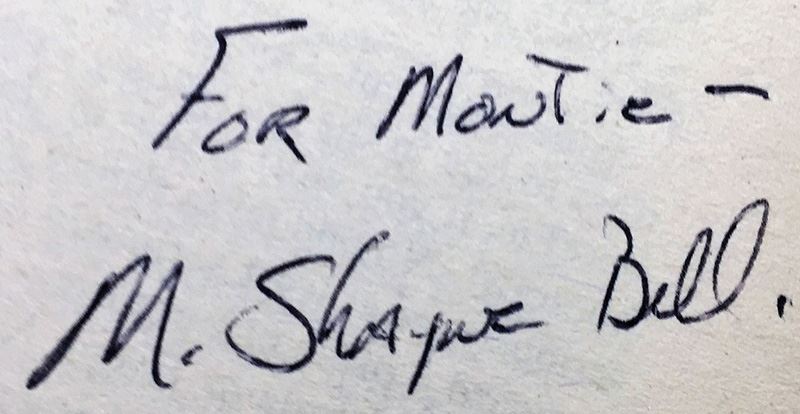 For Montie –
M. Shayne Bell.